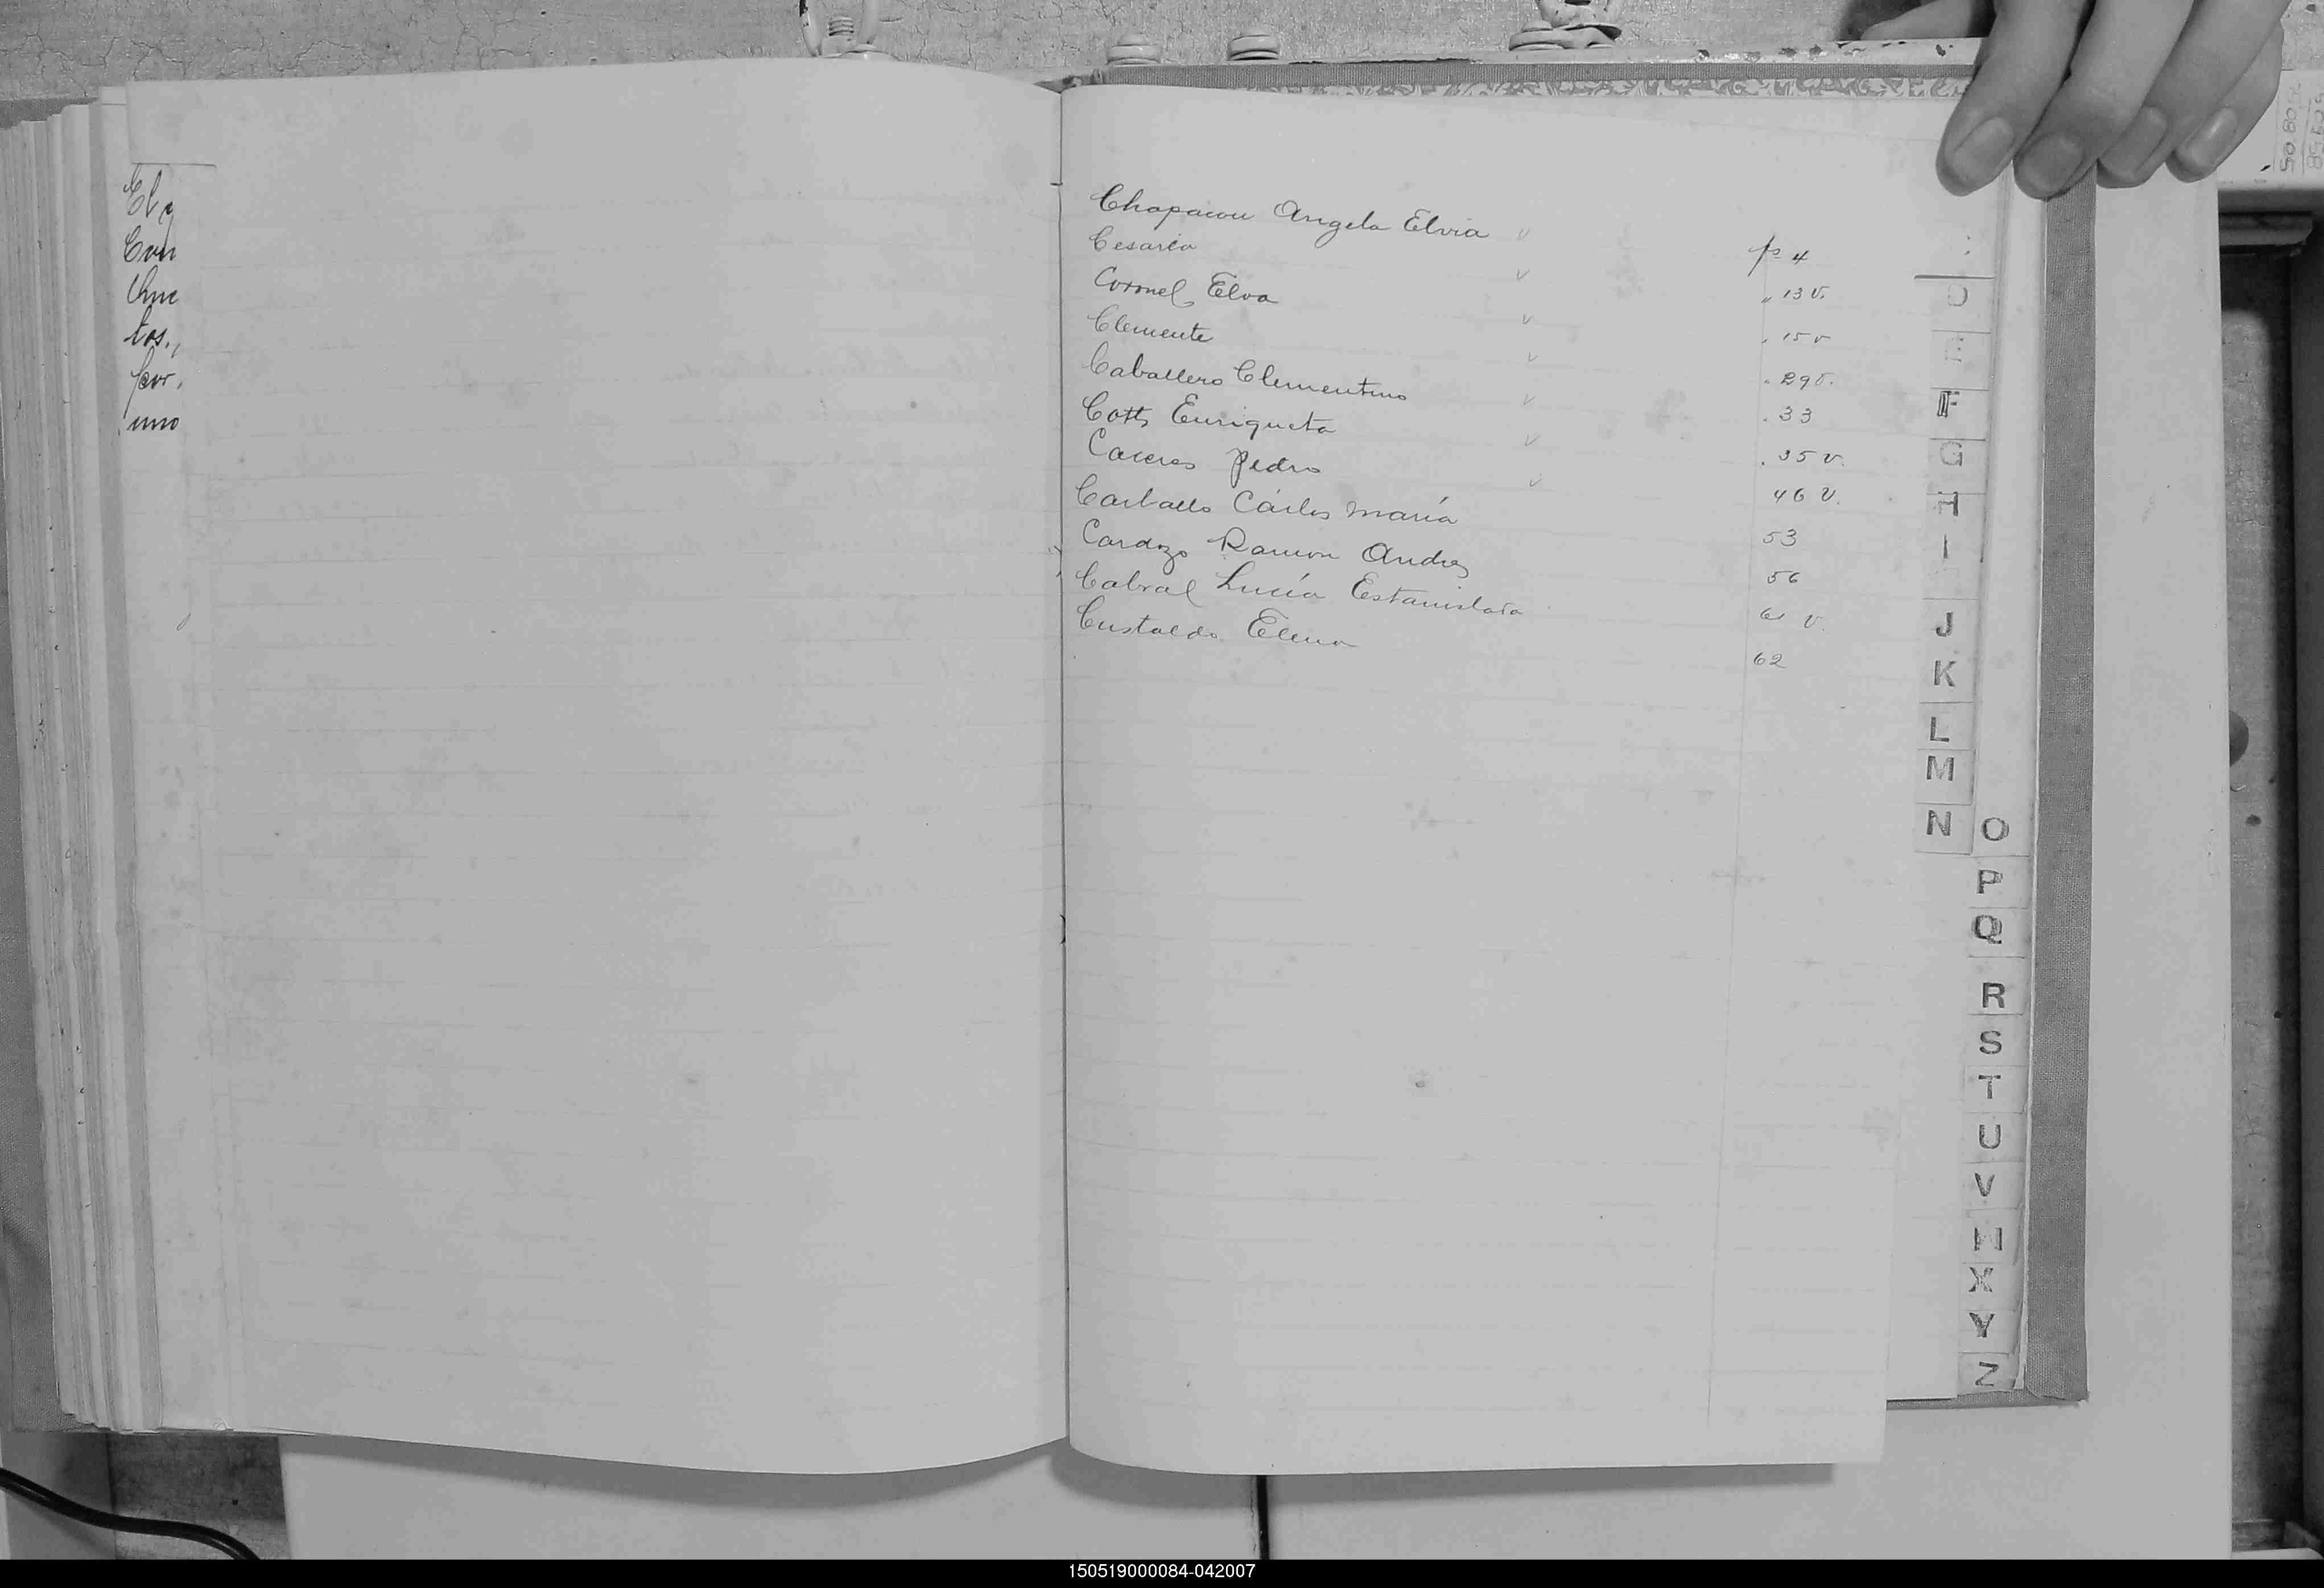 Con
tos.,
por.
uno
Chaparou Angela Elvia fs 4
Cesarea „ 13 v.
Coronel Elva „ 15 v
Clemente „ 29 v.
Caballero Clementino . 33
Cotts Enriqueta . 35 v.
Caceres Pedro 46 v.
Carballo Cárlos María 53
Cardozo Ramon Andres 56
Cabral Lucía Estanislada 61 v.
Custaldo Elena 62
D
E
F
G
H
I
J
K
L
M
N
O
P
Q
R
S
T
U
V
W
X
Y
Z
150519000084-042007